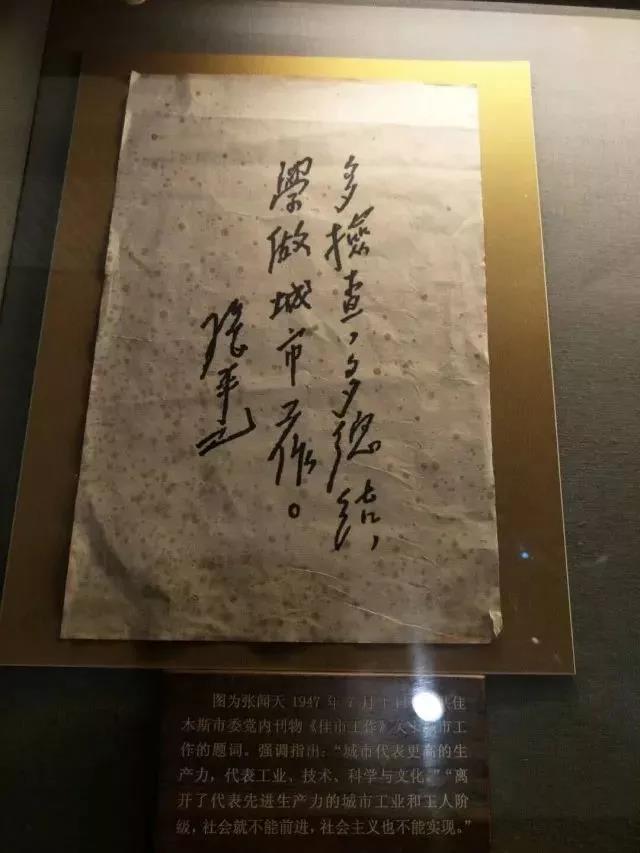 多檢查，多總結，
學做城市工作。
張平之
图为张闻天 1947 年 7 月 佳
木斯市委党内刊物《佳市工作》 城市工
作的题词。强调指出：“城市代表更高的生
产力，代表工业、技术、科学与文化。”“离
开了代表先进生产力的城市工业和工人阶
级，社会就不能前进，社会主义也不能实现。”